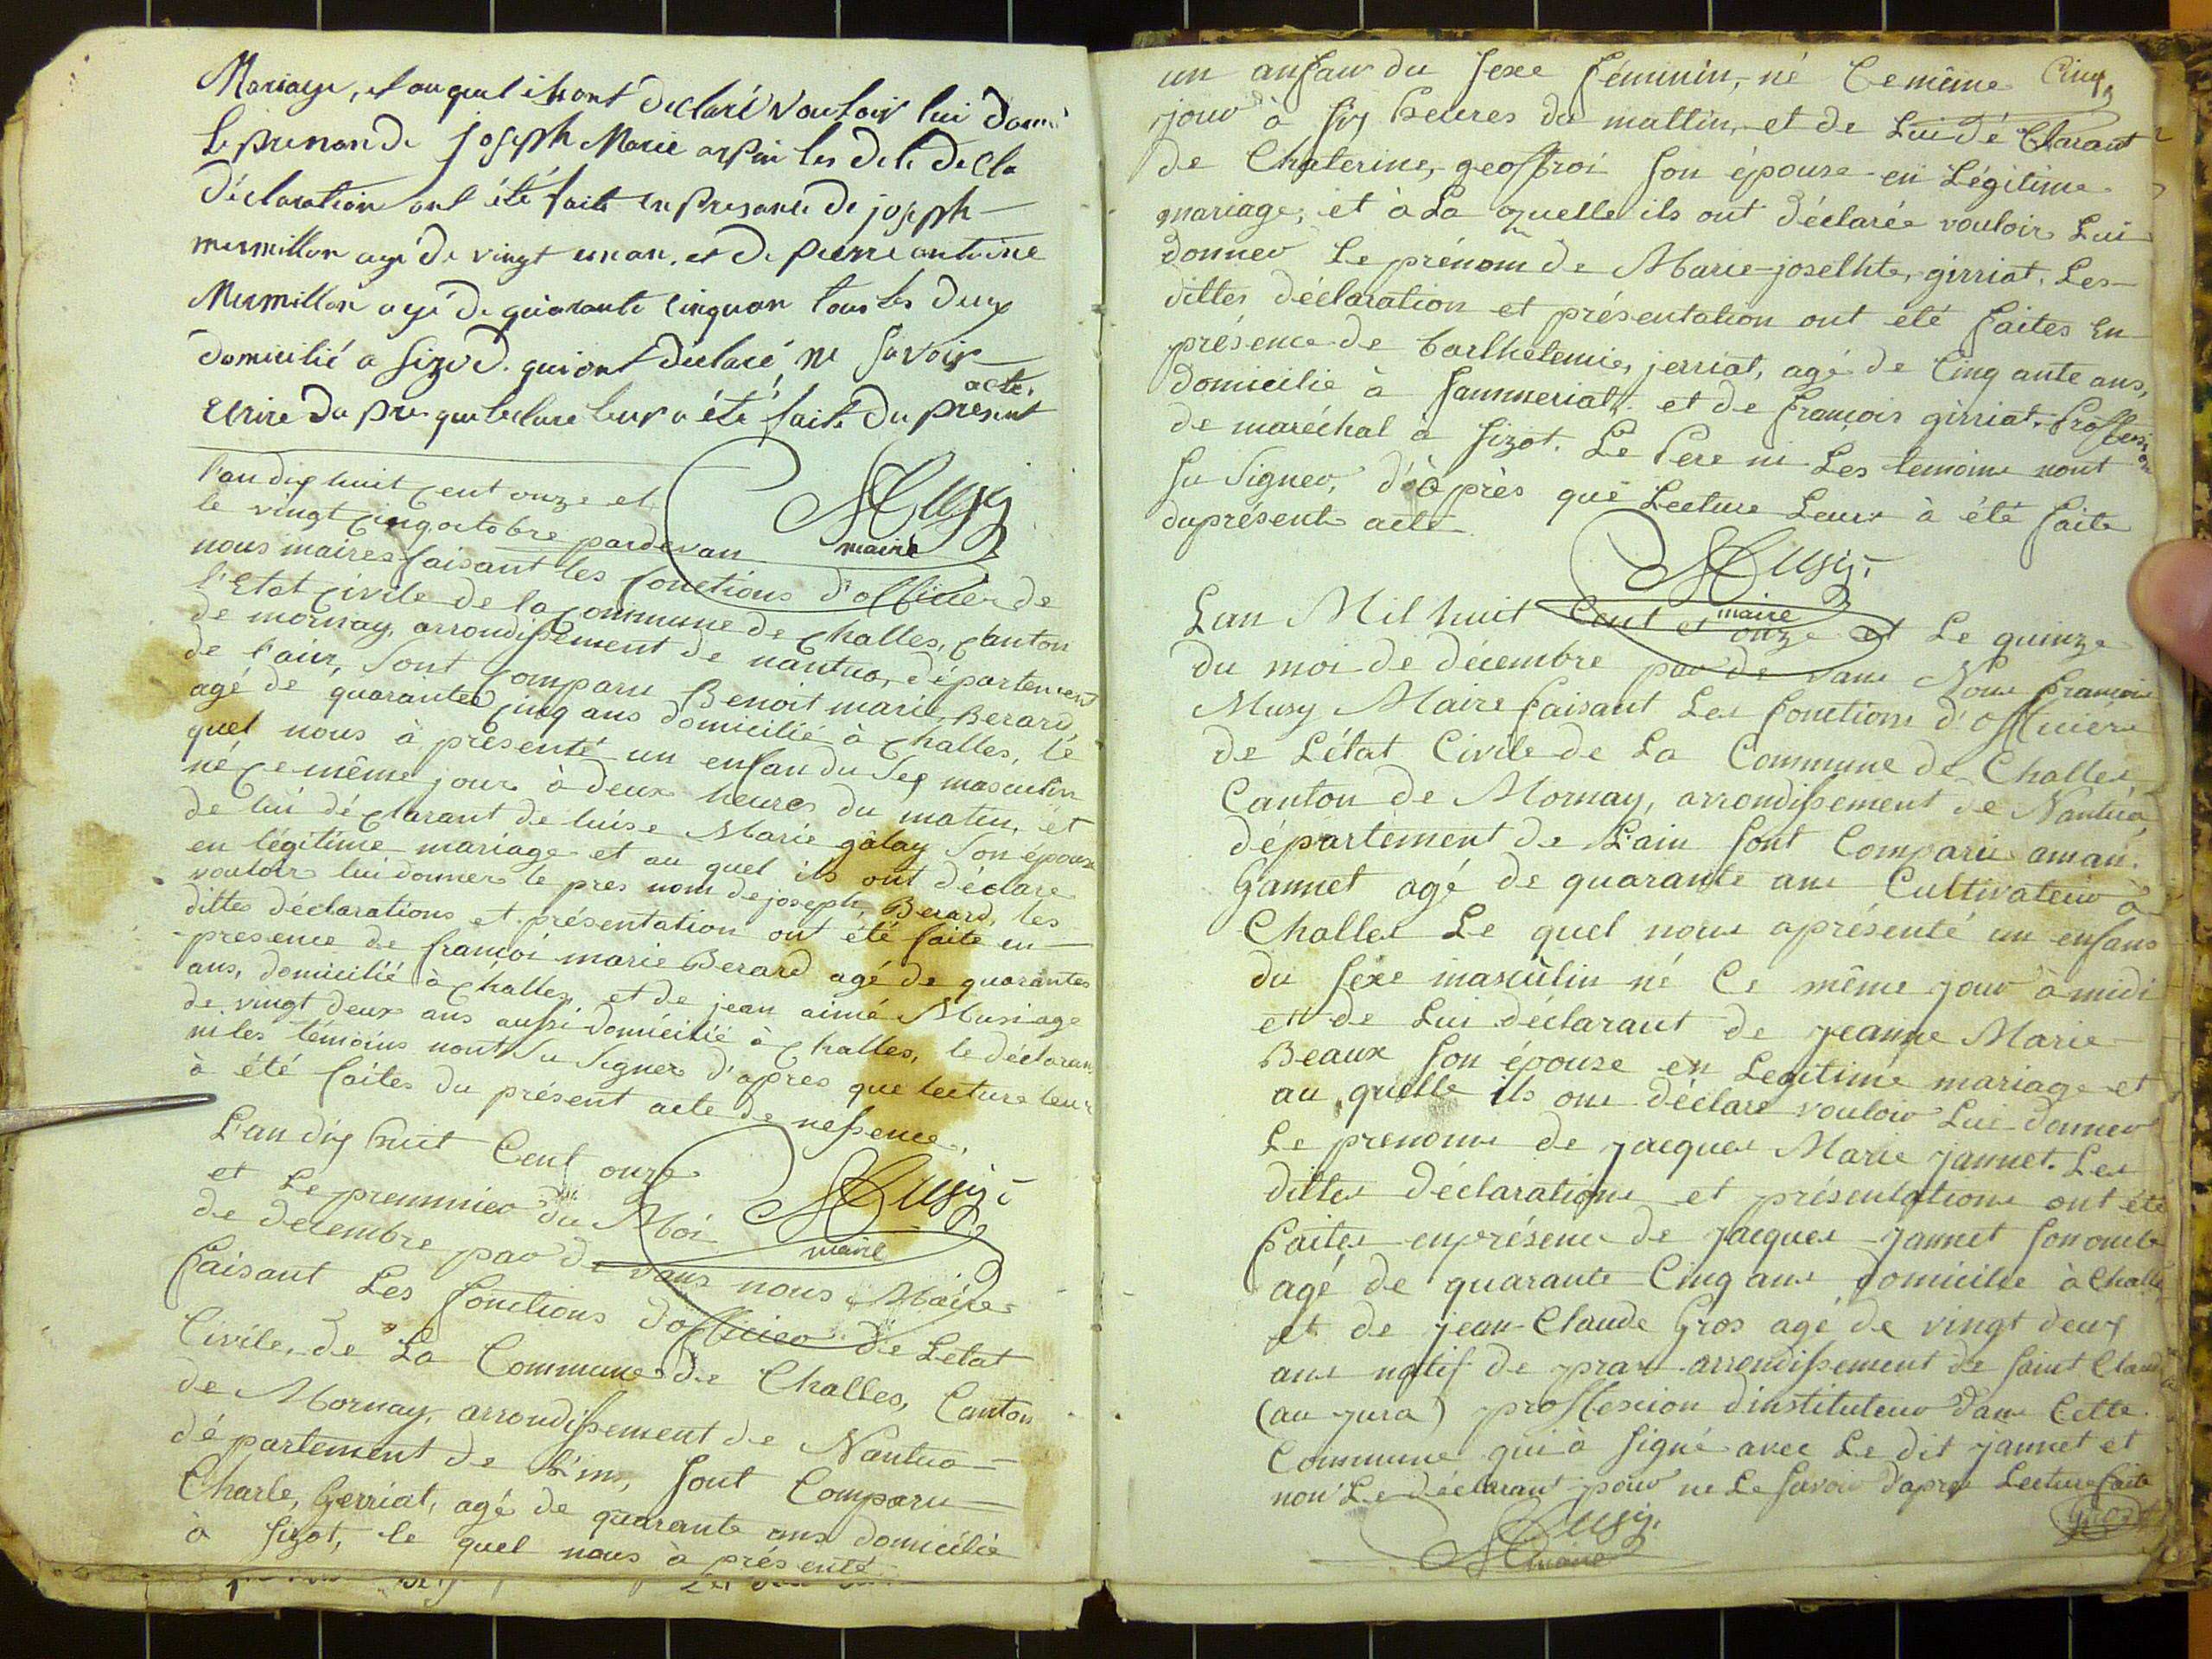 Mariage, et auquel ils ont declaré vouloir lui donné
le prenon de joseph Marie
déclaration ont été faite en presance de joseph
mermillon agé de vingt un an, et de pierre antoine
Mermillon agé de quarante cinq an tous les deux
domicilié a Sizod. qui ont declaré ne savoir
acte.
Ecrire da pres que lecture leur a été faite du présent
l'an dix huit cent onze et
le vingt cinq octobre pardevan
Musy
maire
nous maires faisant les fonctions d'officier de
l'Etat civile de la commune de challes, canton
de mornay, arrondissement de nantua, département
de l'ain, sont comparu Benoit marie Berard,
agé de quarante cinq ans domicilié à challes, le
quel nous à présenté un enfan du sex masculin
né ce même jour à deux heures du matin, et
de lui déclarant de luise Marie galay son épouse
en légitime mariage et au quel ils ont déclare
vouloir lui donner le pres nom de joseph, Berard, les
dittes déclarations et présentation ont été faite en
presence de françoi marie Berard agé de quarantes
ans, domicilié à challes, et de jean aimé Musi age
de vingt deux ans aussi domicilié à challes, le déclaran
ni les témoins nont su signer d'apres que lecture leur
à été faites du présent acte de nessence,
L'an dix huit Cent onze
et Le premmier du Moi
Musy
maire
de decembre par de vans nous Maire
faisant Les fonctions d'officier de L'etat
Civile, de La Commune de Challes, Canton
de Mornay, arrondissement de Nantua
département de L'inn, sont Comparu
Charle, Gerriat, agé de quarante ans domicilié
à sizot, le quel nous à présenté
un anfan du sexe féminin, né Ce même Cinq
jour à six heures du mattin, et de Lui dé Clarant
de Chaterine, geoffroi son épouse en Légitime
mariage, et à La quelle ils ont déclarée vouloir Lui
donner Le prénom de Marie-joselhte, girriat. Les
dittes déclaration et présentation ont été faites En
présence de barthelemie, jerriat, agé de Cinq ante ans,
domicilié à sammeriat, et de françois girriat. Proffession
de maréchal à sizot. Le Pere ni Les temoins nont
su Signer, d'àprès que Lecture Leur à été faite
du présent acte
Musy
maire
Lan Mil huit Cent et onze et Le quinze
du moi de décembre par de vans Nous françois
Musy Maire faisant Les fonctions d'officiére
de L'état Civile de La Commune de Challes
Canton de Mornay, arrondissement de Nantua,
département de L'ain sont Comparu aman.
Gannet agé de quarante ans Cultivateur à
Challes Le quel nous à présenté un enfans
du sexe masculin né Ce même jour à midi
et de Lui déclarant de jeanne Marie
Beaux son épouse en Legitime mariage et
au quelle ils ons déclare vouloir Lui donner
Le prenoms de jacques Marie jannet. Les
dittes déclarations et présentations ont été
faites en présence de jacques jannet son oncle
agé de quarante Cinq ans domicilié à Challe
et de jean-Claude Gros agé de vingt deux
ans natif de arrondissement de saint Claude
(au jura) proffession d'instituteur dans Cette
Commune qui à signé avec Le dit jannet et
non Le déclarant pour ne Le savoir d'apres Lecture faite
Musy
maire
Gros